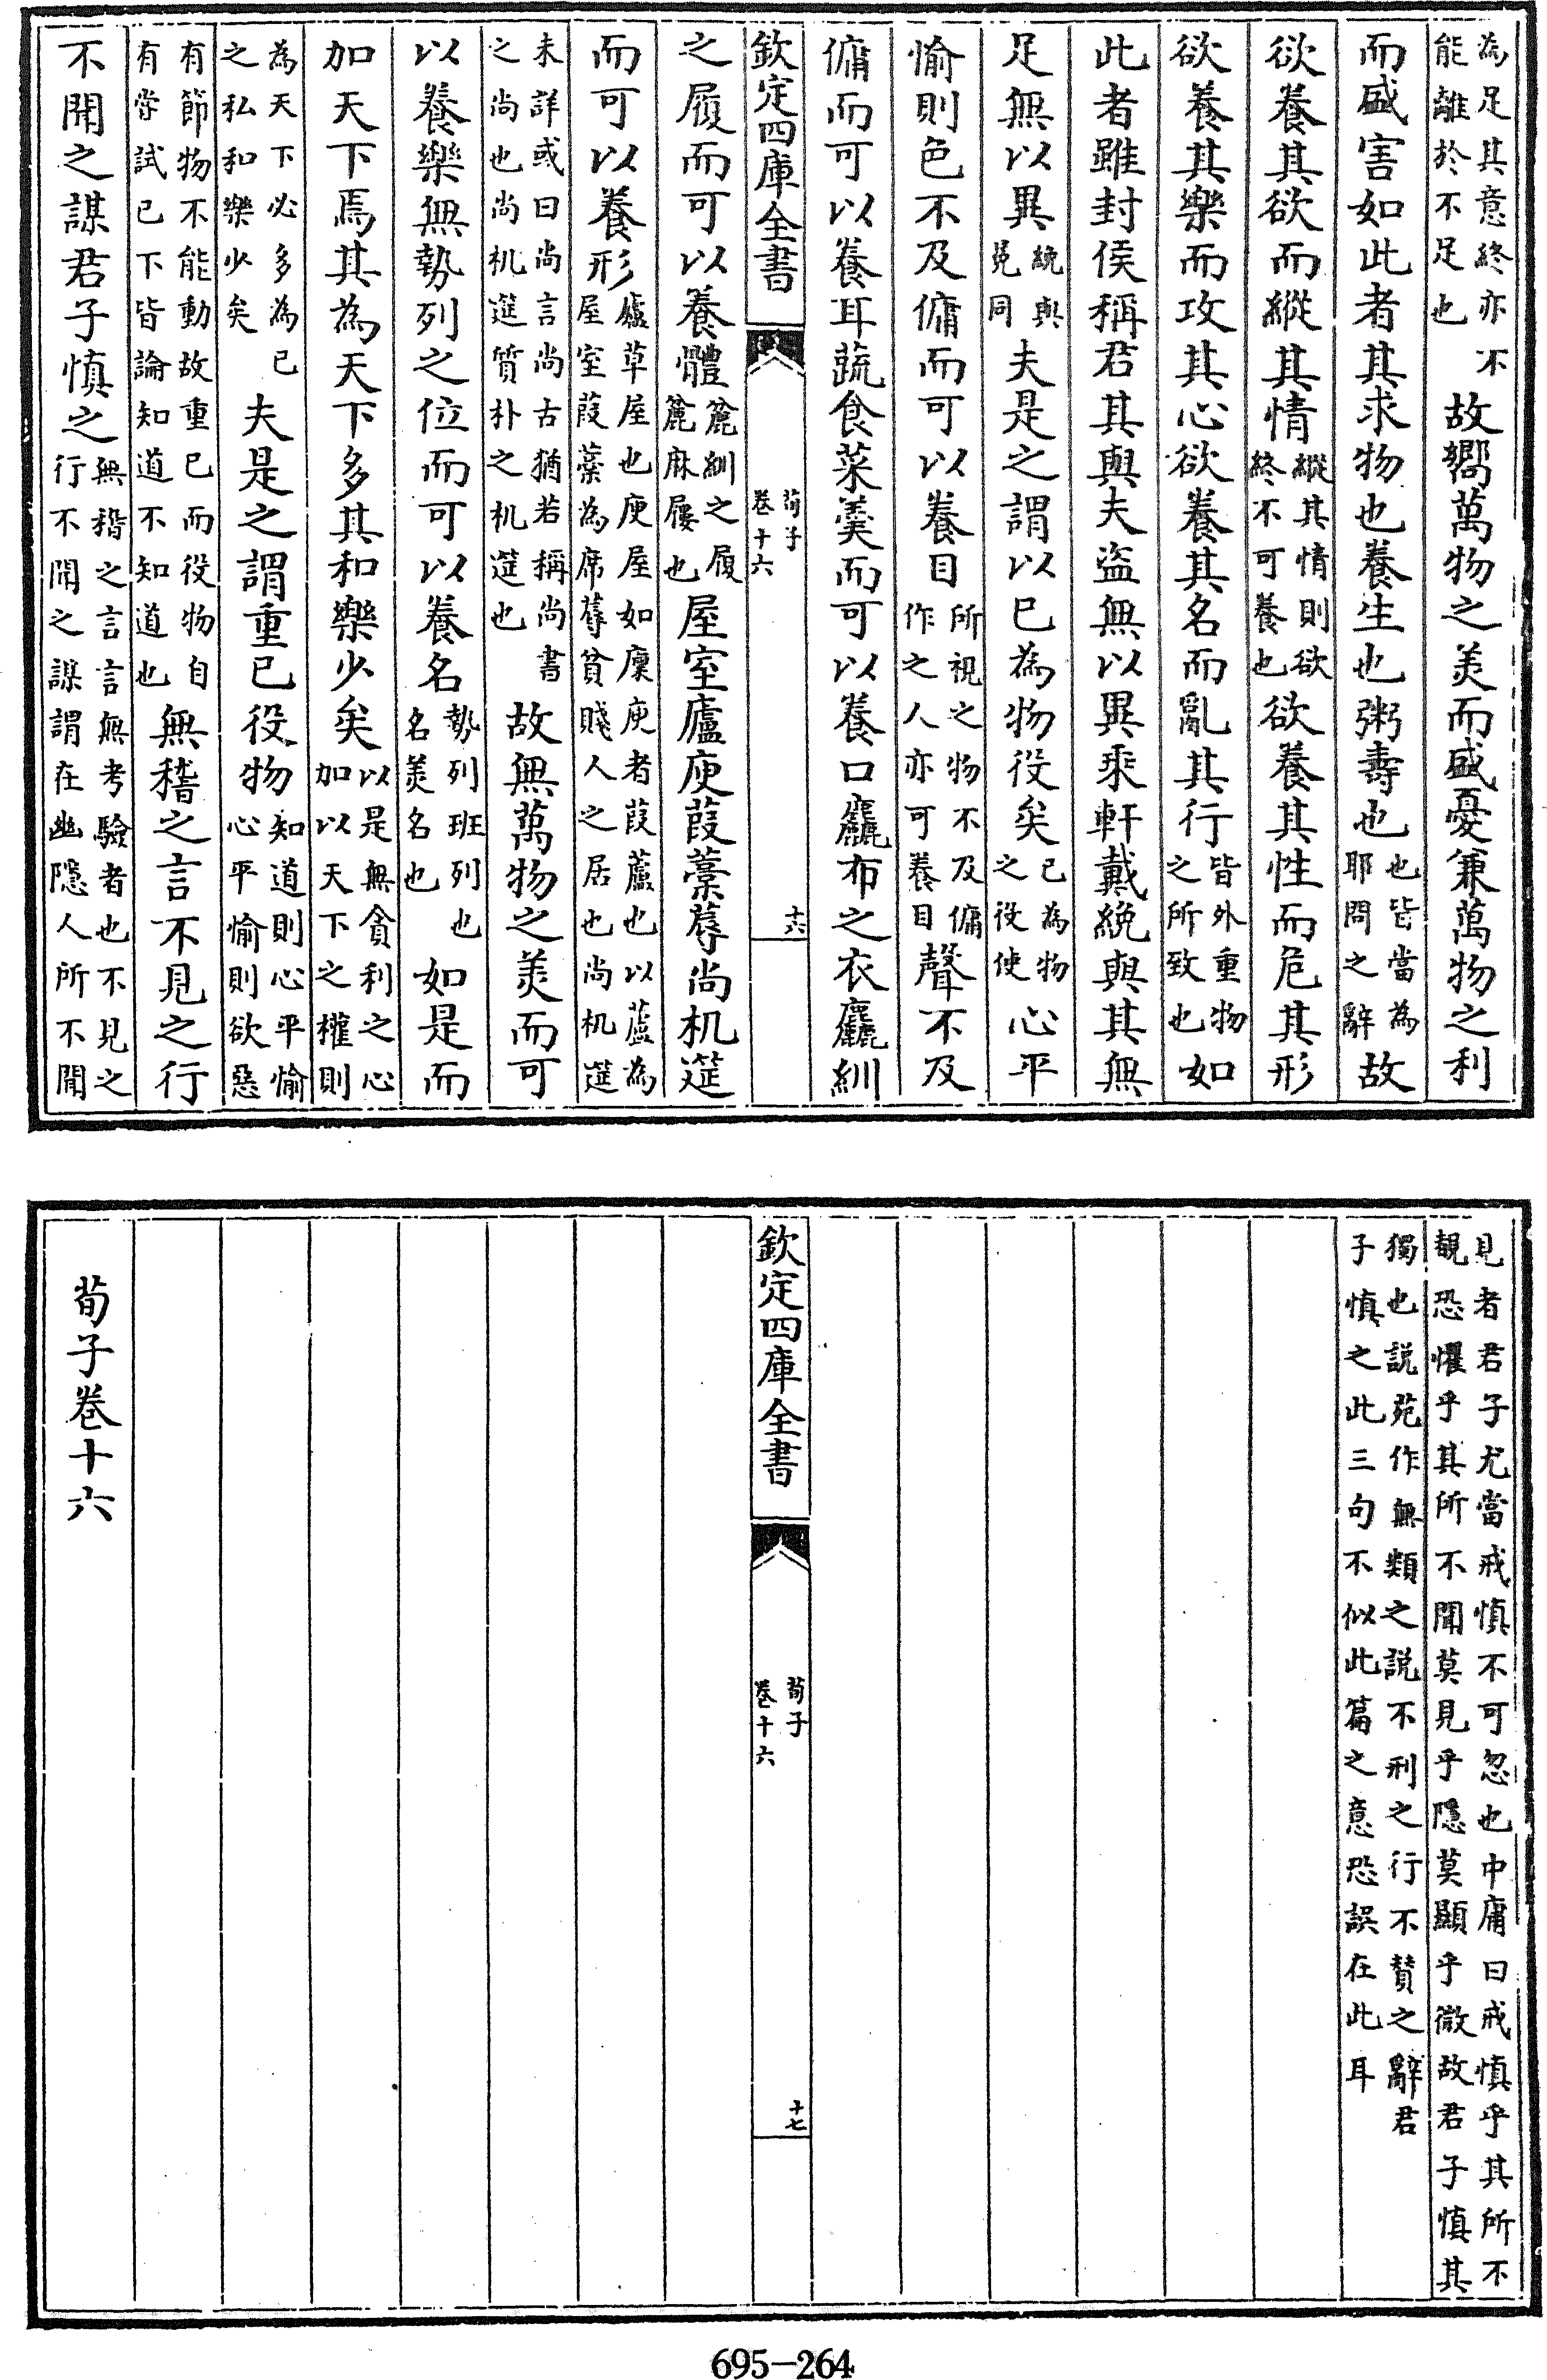 為足其意終亦不能離於不足也故嚮萬物之美而盛憂兼萬物之利
而盛害如此者其求物也養生也粥壽也也皆當為耶問之辭故
欲養其欲而縱其情縱其情則欲終不可養也欲養其性而危其形
欲養其樂而攻其心欲養其名而亂其行皆外重物之所致也如
此者雖封侯稱君其與夫盜無以異乘軒戴絻與其無
足無以異絻與冕同夫是之謂以已為物役矣已為物之役使心平
愉則色不及傭而可以養目所視之物不及傭作之人亦可養目聲不及
傭而可以養耳蔬食菜羮而可以養口麤布之衣麤紃
欽定四庫全書
荀子
卷十六
十六
之履而可以養體麄紃之履麄麻屨也屋室廬庾葭藁蓐尚机筵
而可以養形廬草屋也庾屋如廩庾者葭蘆也以蘆為屋室葭藁為席蓐貧賤人之居也尚机筵
未詳或曰尚言尚古猶若稱尚書之尚也尚机筵質朴之机筵也故無萬物之美而可
以養樂無勢列之位而可以養名勢列班列也名美名也如是而
加天下焉其為天下多其和樂少矣以是無貪利之心加以天下之權則
為天下必多為已之私和樂少矣夫是之謂重已役物知道則心平愉心平愉則欲惡
有節物不能動故重已而役物自有甞試已下皆論知道不知道也無稽之言不見之行
不聞之謀君子慎之無稽之言言無考驗者也不見之行不聞之謀謂在幽隱人所不聞
見者君子尤當戒慎不可忽也中庸曰戒慎乎其所不覩恐懼乎其所不聞莫見乎隱莫顯乎微故君子慎其
獨也説苑作無類之説不刑之行不賛之辭君子慎之此三句不似此篇之意恐誤在此耳
欽定四庫全書
荀子
卷十六
十七
荀子卷十六
695-264